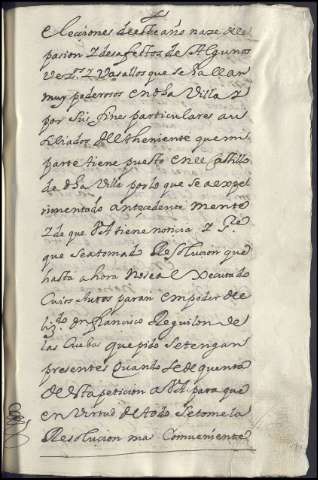 elecciones de este año naze de
pasion y desafectos de Algunos
vez.os y Vasallos que se hallan
muy poderosos en dha Villa y
por sus fines particulares au
siliados del theniente que mi
parte tiene puesto en el castillo
de dha Villa por lo que se a expe
rimentado antecedente mente
y de que VA tiene noticia y
que se a tomado Resolucion que
hasta ahora no se a executado
Cuios Autos paran em poder de
Dn Francisco Reguilon de
las Cuebas que pido se tengan
presentes Quando se de quenta
de esta peticion a VA para que
en virtud de todo se tome la
Resolucion mas Comveniente